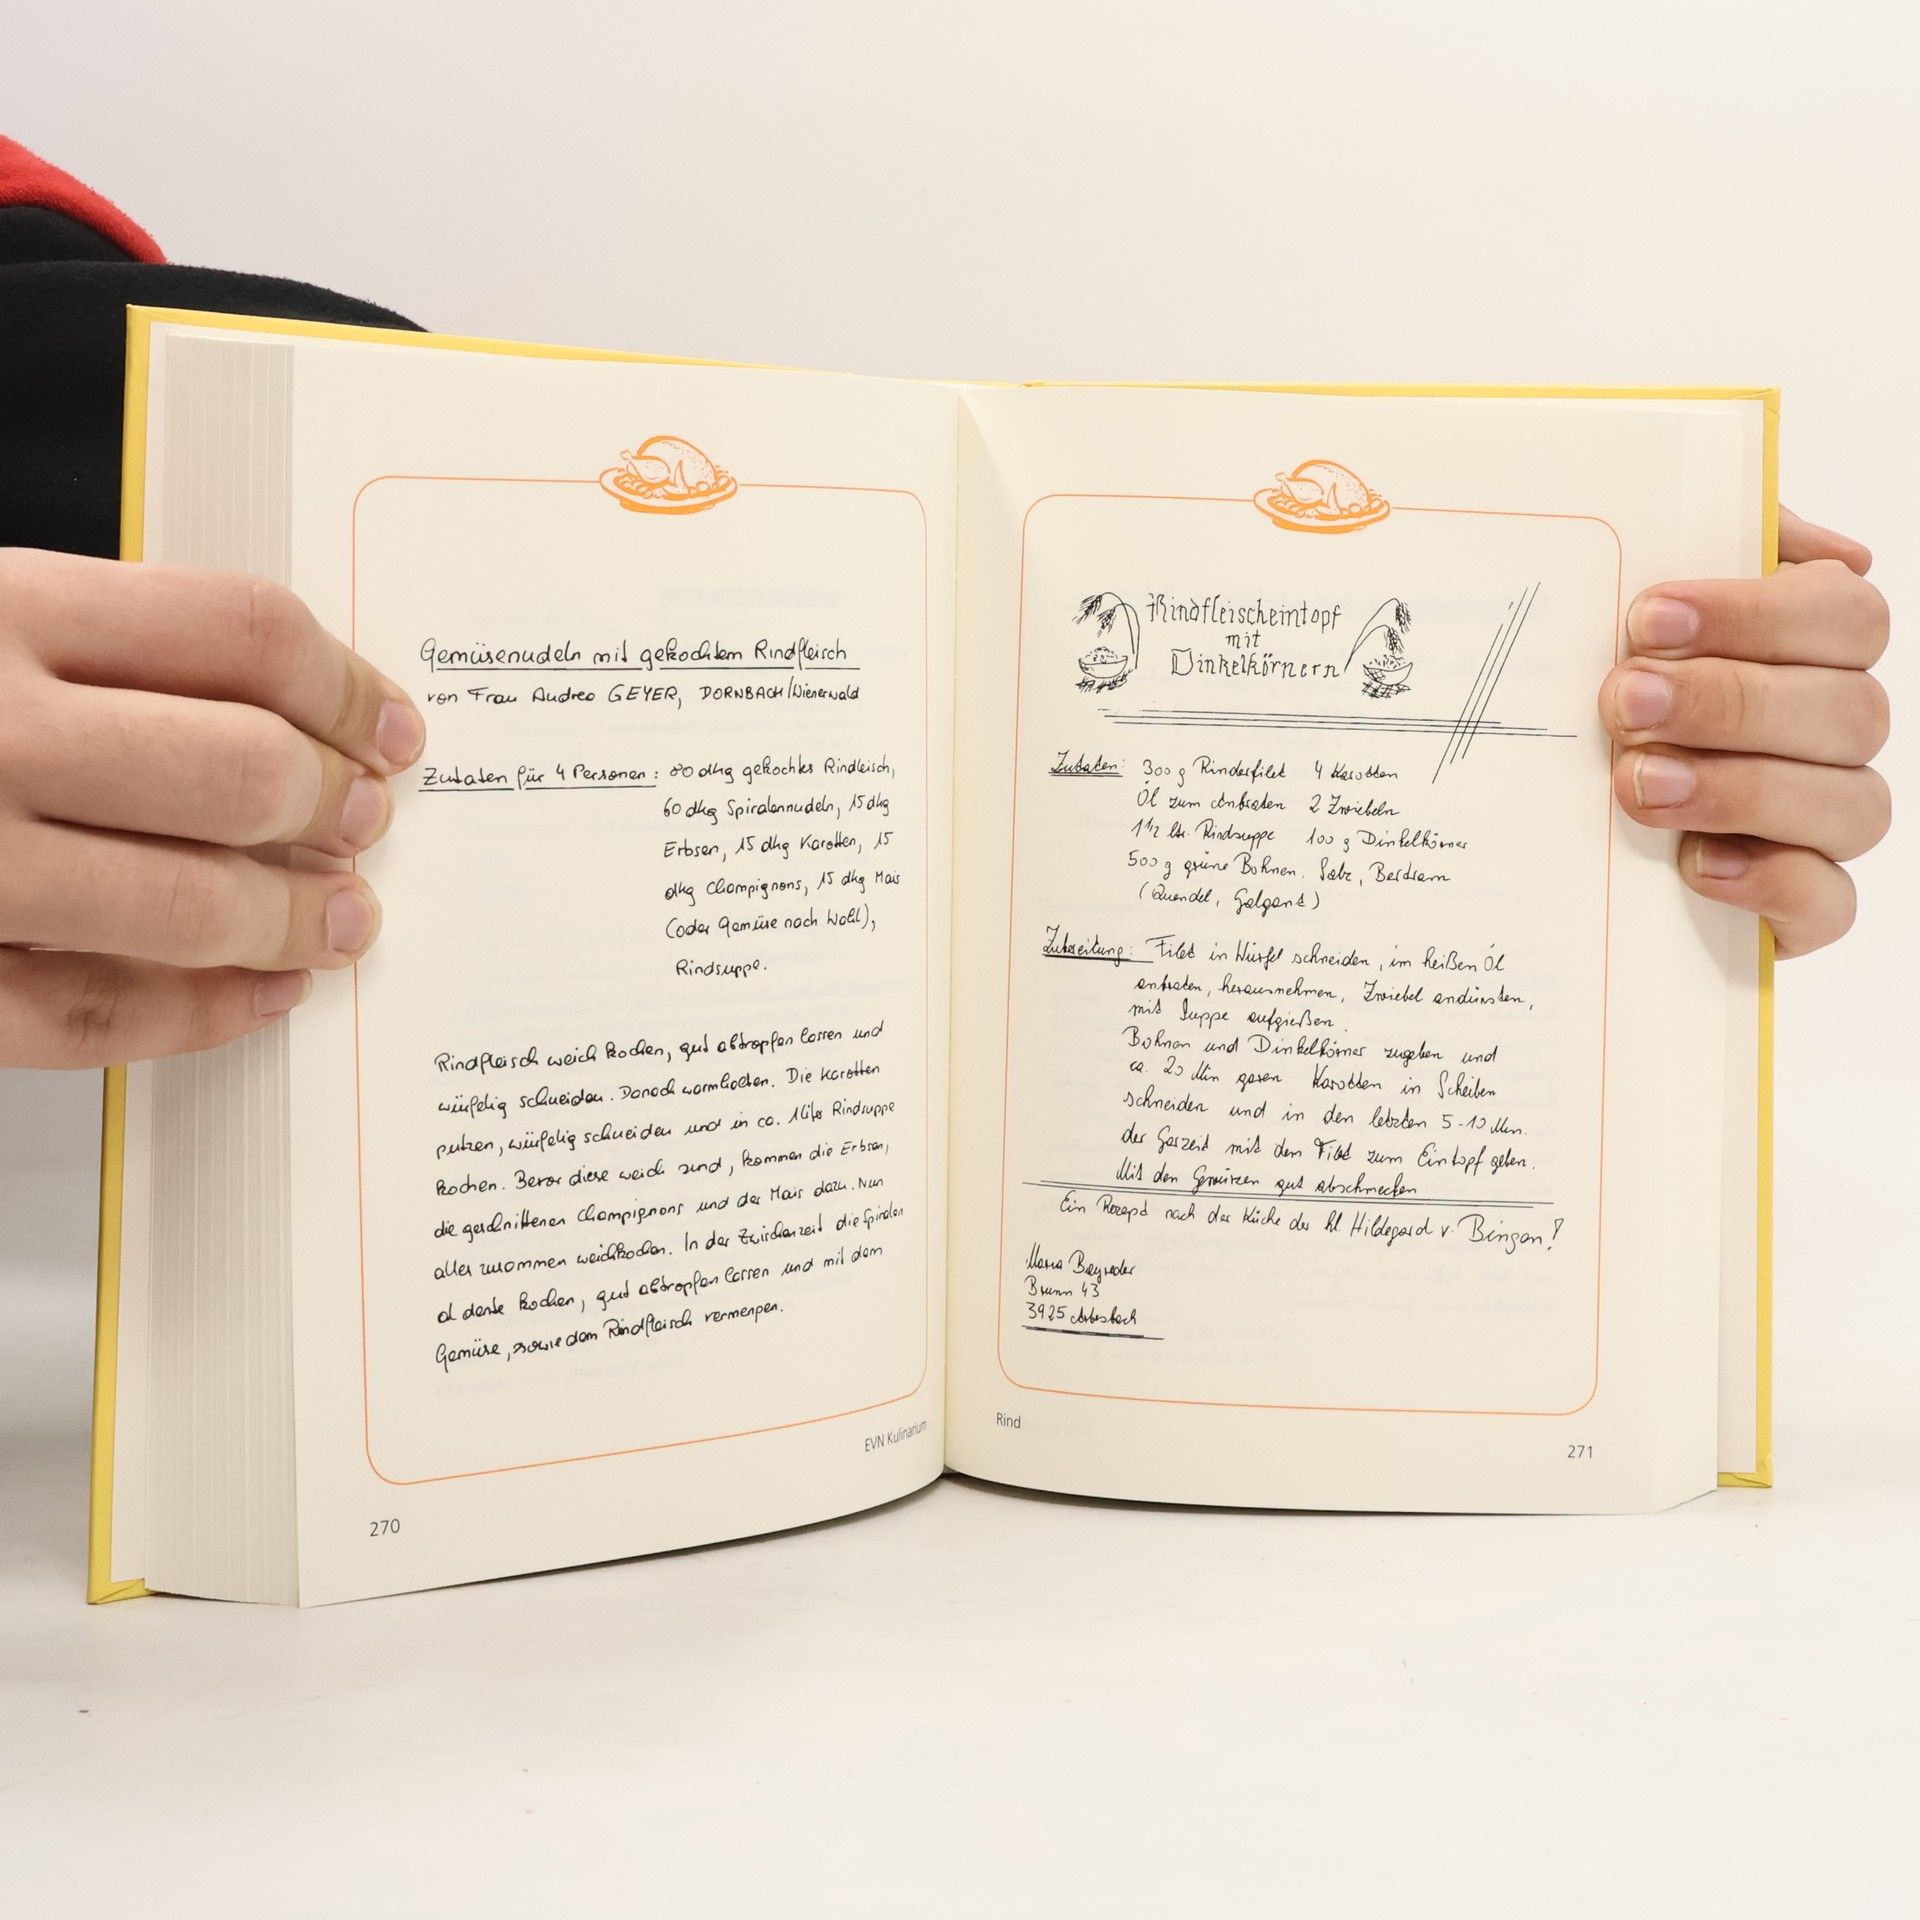 Gemüsenudeln mit gekochtem Rindfleisch
von Frau Andrea GEYER, DORNBACH/Wienerwald
Zutaten für 4 Personen: 80 dkg gekochtes Rindfleisch,
60 dkg Spiralennudeln, 15 dkg
Erbsen, 15 dkg Karotten, 15
dkg Champignons, 15 dkg Mais
(oder Gemüse nach Wahl),
Rindsuppe.
Rindfleisch weich kochen, gut abtropfen lassen und
würfelig schneiden. Danach warmhalten. Die Karotten
putzen, würfelig schneiden und in ca. 1 liter Rindsuppe
kochen. Bevor diese weich sind, kommen die Erbsen,
die geschnittenen Champignons und der Mais dazu. Nun
alles zusammen weichkochen. In der Zwischenzeit die Spiralen
al dente kochen, gut abtropfen lassen und mit dem
Gemüse, sowie dem Rindfleisch vermengen.
EVN Kulinarium
270
Rindfleischeintopf
mit
Dinkelkörnern
Zutaten: 300 g Rinderfilet 4 Karotten
Öl zum Anbraten 2 Zwiebeln
1 1/2 ltr. Rindsuppe 100 g Dinkelkörner
500 g grüne Bohnen, Salz, Bertram
(Quendel, Galgant)
Zubereitung: Filet in Würfel schneiden, im heißen Öl
anbraten, herausnehmen, Zwiebel andünsten,
mit Suppe aufgießen.
Bohnen und Dinkelkörner zugeben und
ca. 20 Min garen Karotten in Scheiben
schneiden und in den letzten 5-10 Min.
der Garzeit mit dem Filet zum Eintopf geben.
Mit den Gewürzen gut abschmecken
Ein Rezept nach der Küche der hl. Hildegard v. Bingen!
Maria Bayreder
Brunn 43
3925 Arbesbach
Rind
271